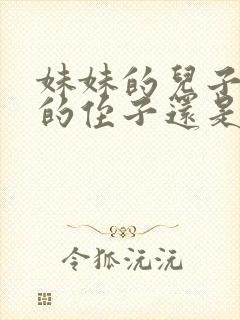 妹妹的兒子
的侄子還是
令狐沅沅